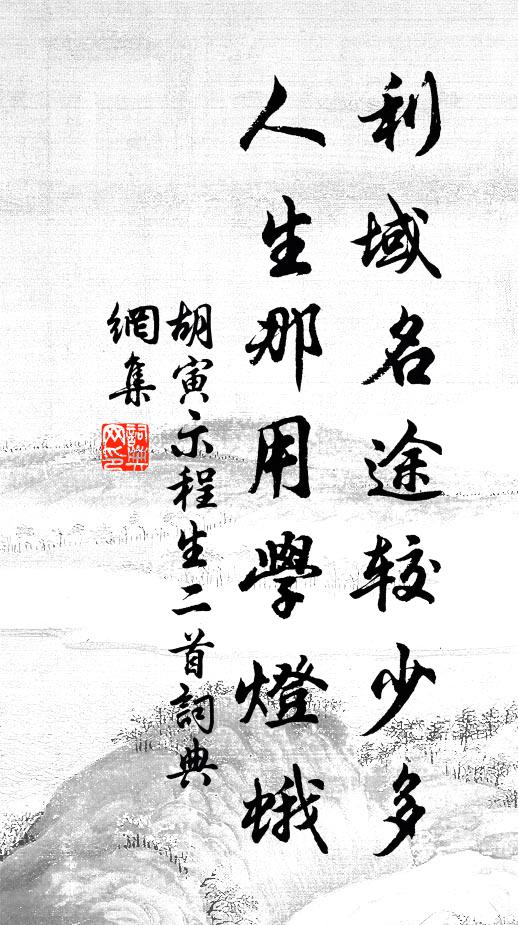 利域名途较少多
人生那用學燈蛾
胡寅示程生二首詞典
網集